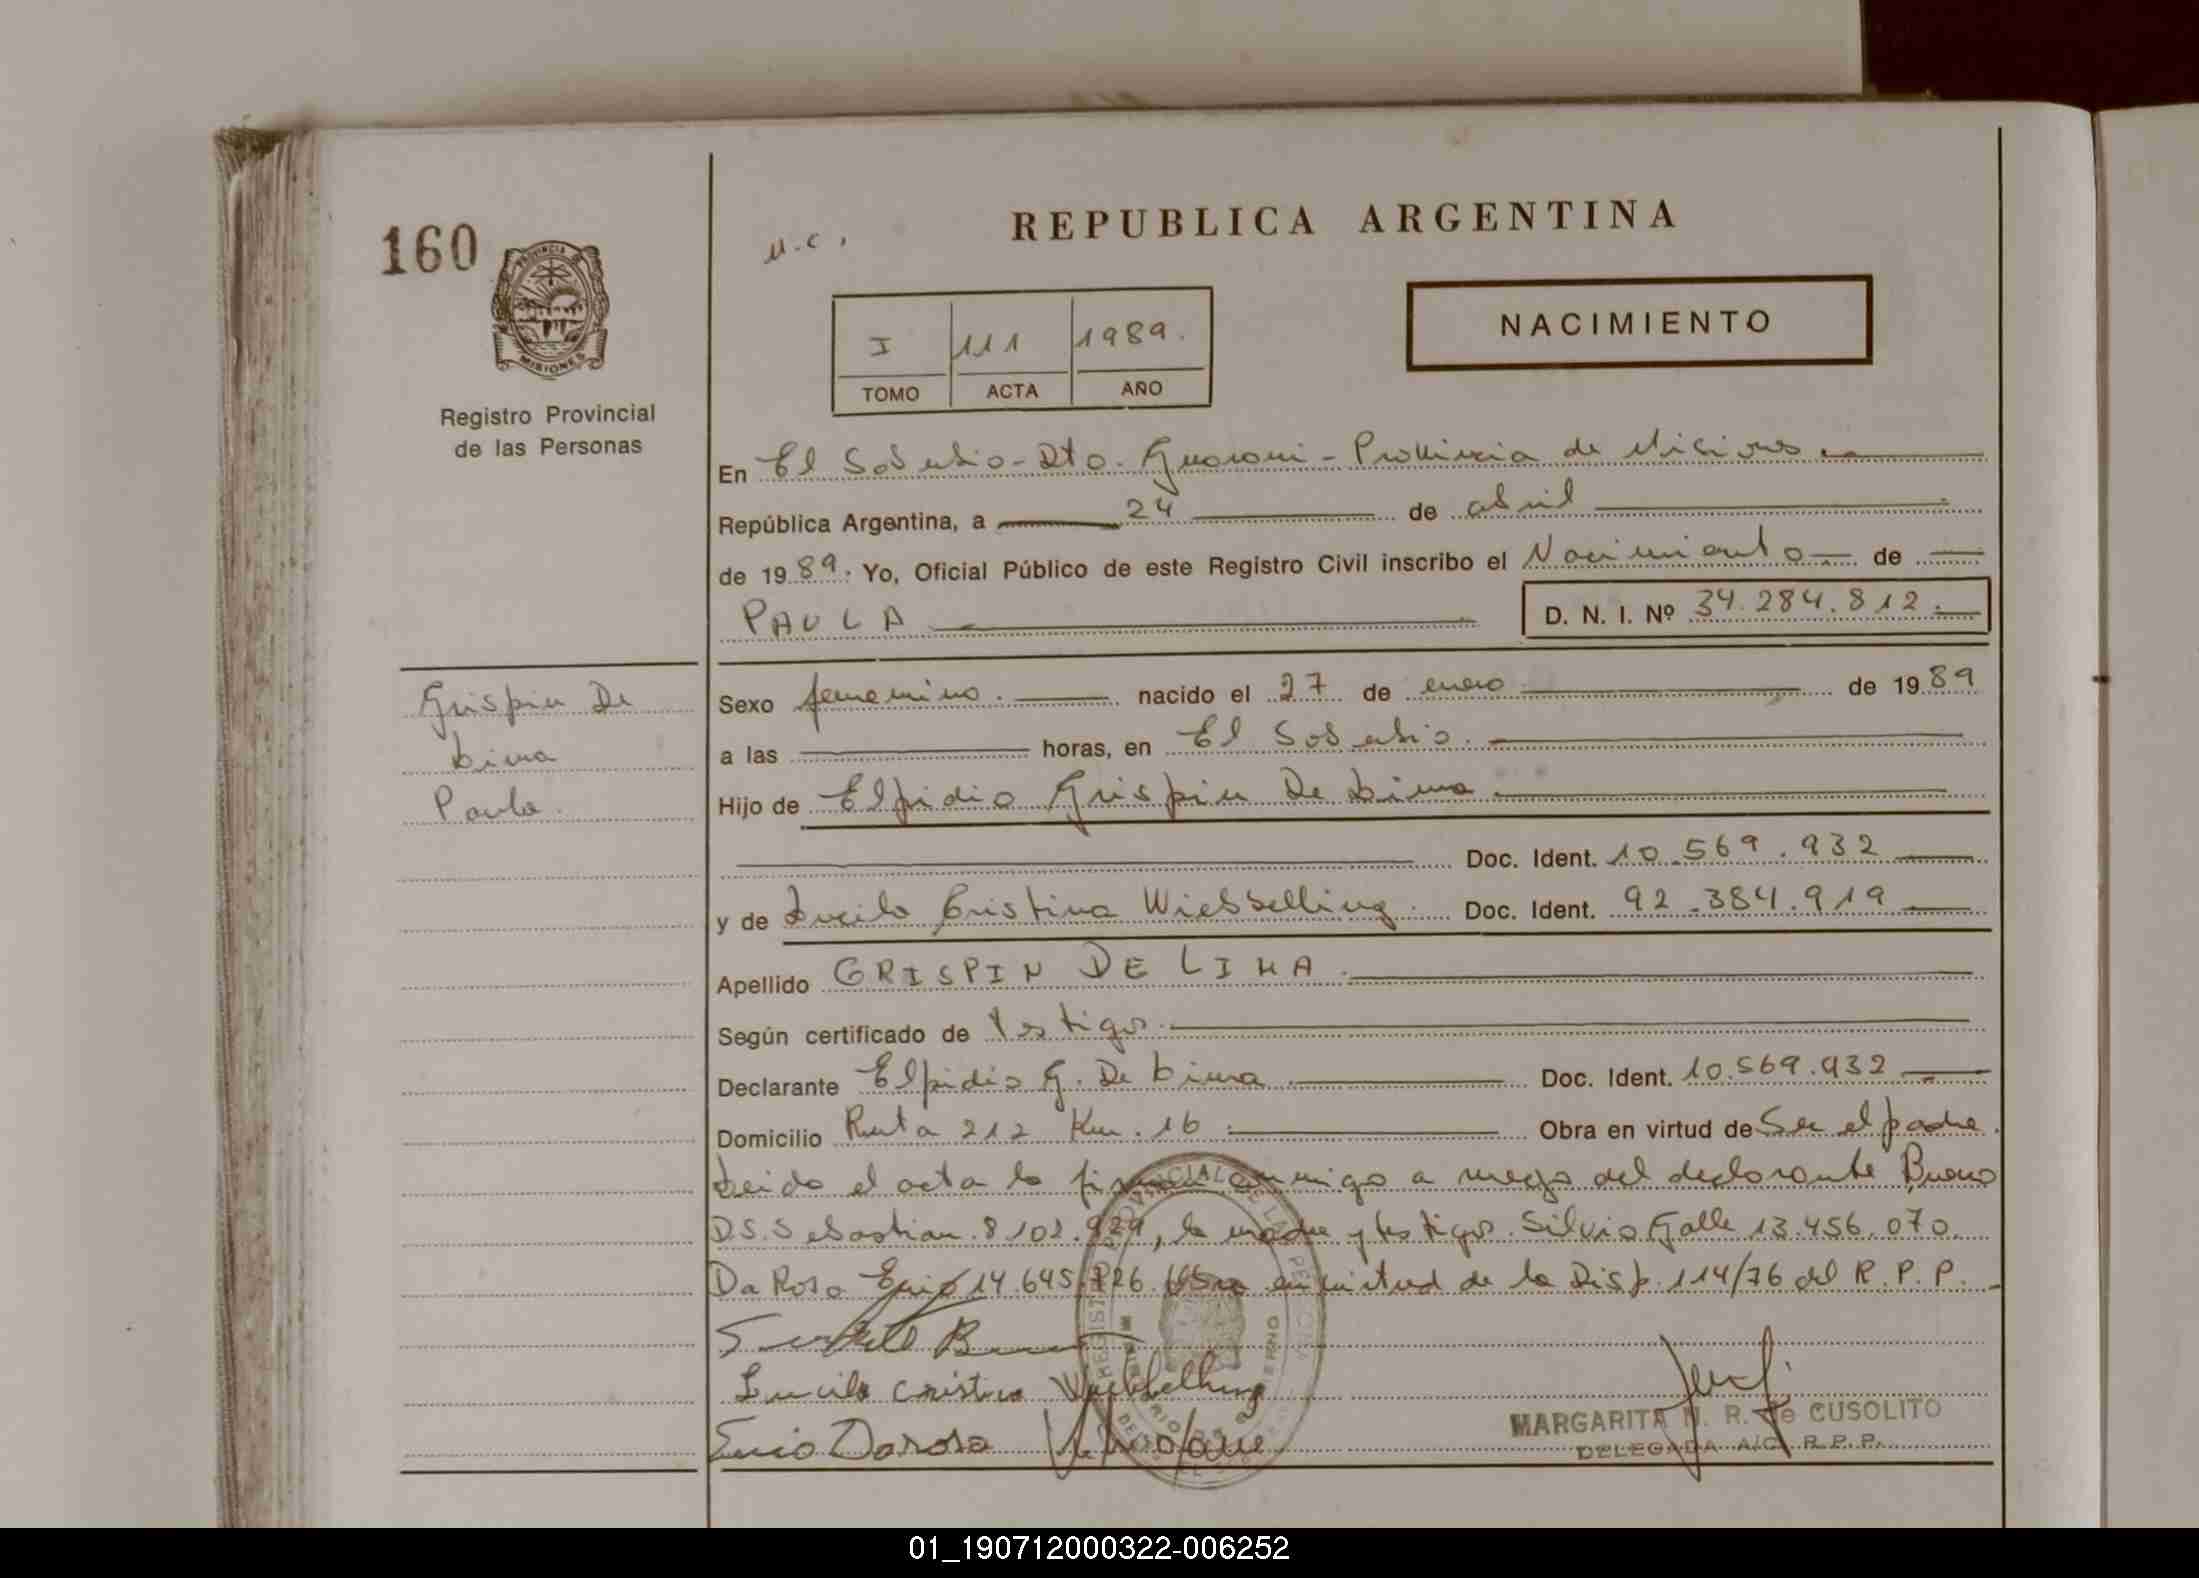 160
PROVINCIA
MISIONES
Registro Provincial
de las Personas
u.c.
REPUBLICA ARGENTINA
I 111 1989.
TOMO ACTA AÑO
NACIMIENTO
En El Soberbio - Dto. Guarani - Provincia de Misiones
República Argentina, a 24 de abril
de 1989. Yo, Oficial Público de este Registro Civil inscribo el Nacimiento de
PAULA D. N. I. Nº 34.284.812.
Grispin De
Lima
Paula.
Sexo femenino. nacido el 27 de enero de 1989
a las horas, en El Soberbio.
Hijo de Elpidio Grispin De Lima
Doc. Ident. 10.569.932
y de Lucila Cristina Wiebbelling. Doc. Ident. 92.384.919
Apellido GRISPIN DE LIMA.
Según certificado de testigos.
Declarante Elpidio G. De Lima Doc. Ident. 10.569.932
Domicilio Ruta 212 Km. 16. Obra en virtud de Ser el padre.
Leida el acta la firman conmigo a ruego del declarante Bueno
D.S. Sebastian. 8.102.929, la madre y testigos. Silvio Galle 13.456.070.
Da Rosa Enio 14.645.826. Obra en virtud de la Disp. 114/76 del R. P. P.
Lucila Cristina Wiebbelling
Enio Darosa
MARGARITA N. R. de CUSOLITO
DELEGADA A/C. R. P. P.
01_190712000322-006252